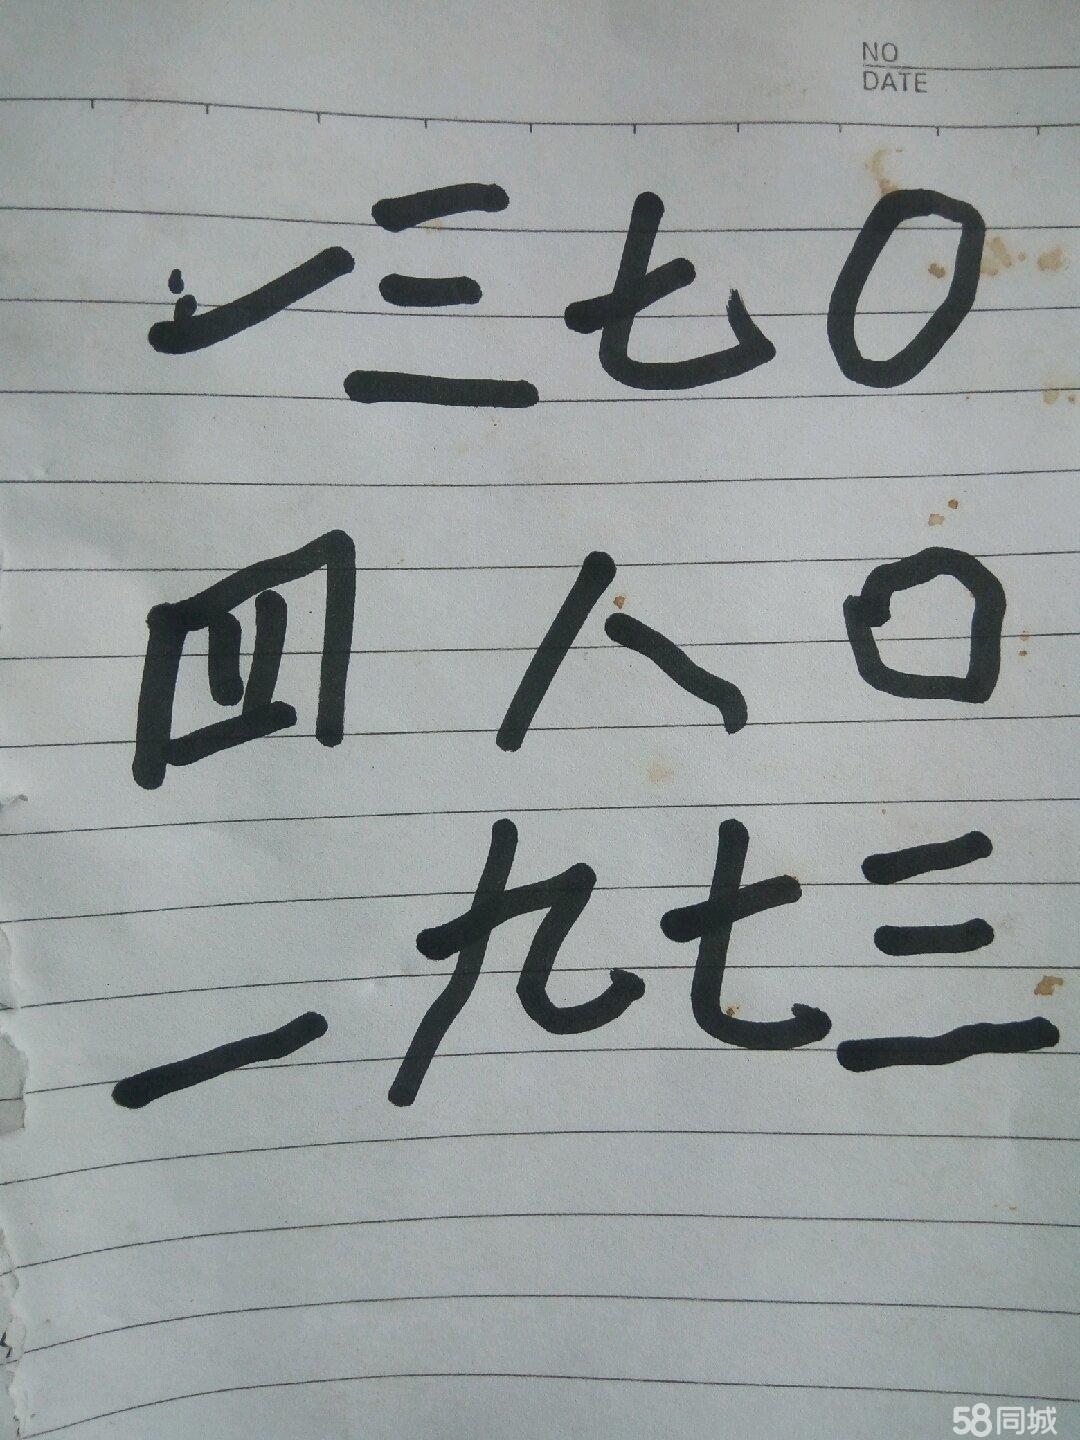 NO
DATE
一三七〇
四八〇
一九七三
58同城